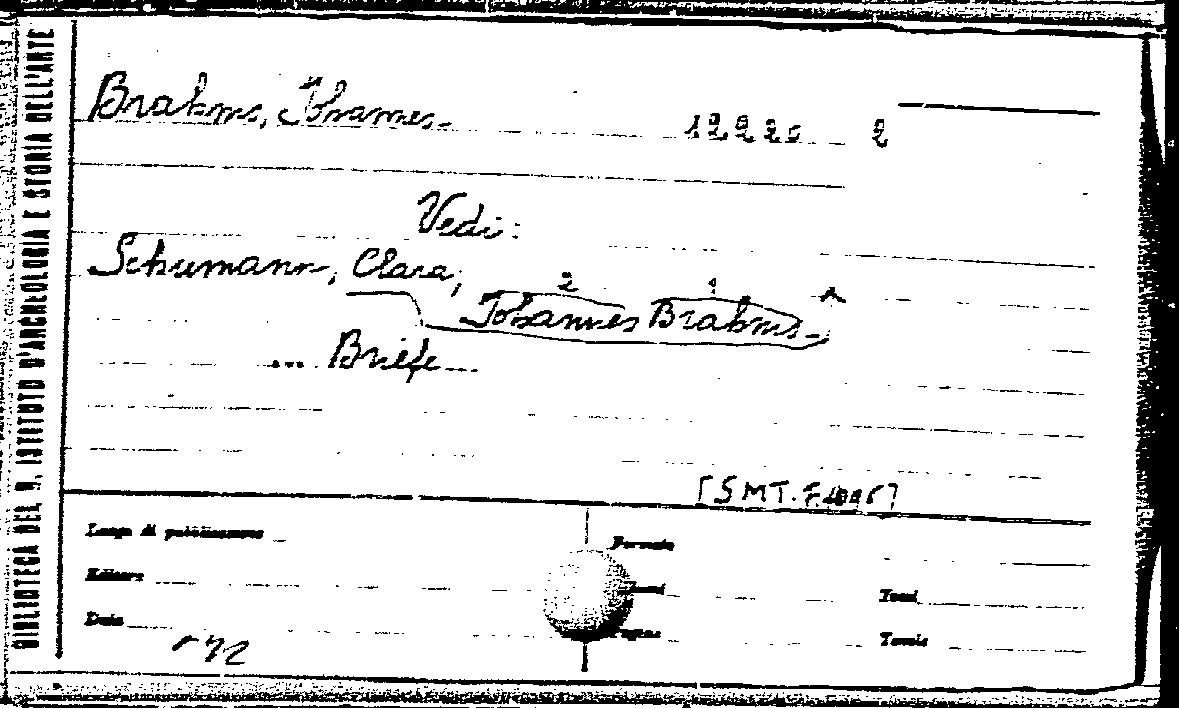 BIBLIOTECA DEL R. ISTITUTO D'ARCHEOLOGIA E STORIA DELL'ARTE
Brahms, Johannes. 12220 2
Vedi:
Schumann, Clara,
2 1
Johannes Brahms.
... Briefe...
[SMT.
Luogo di pubblicazione
Formato
Editore
Tomi
Data
Pagine
Tavole